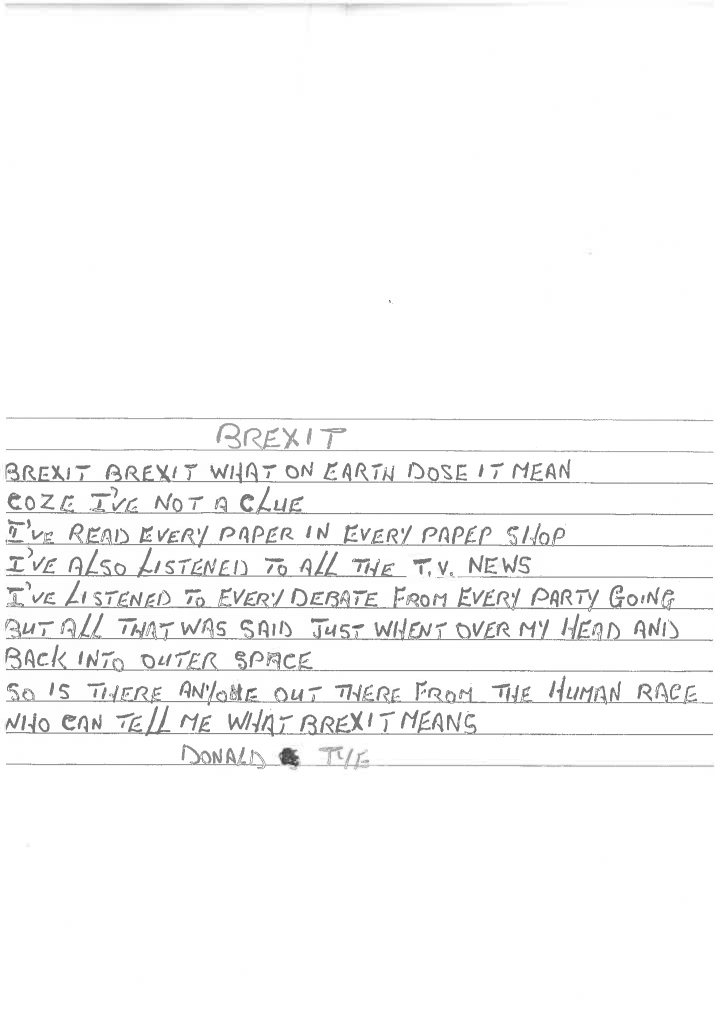 BREXIT
BREXIT BREXIT WHAT ON EARTH DOSE IT MEAN
COZE I'VE NOT A CLUE
I'VE READ EVERY PAPER IN EVERY PAPER SHOP
I'VE ALSO LISTENED TO ALL THE T.V. NEWS
I'VE LISTENED TO EVERY DEBATE FROM EVERY PARTY GOING
BUT ALL THAT WAS SAID JUST WHENT OVER MY HEAD AND
BACK INTO OUTER SPACE
SO IS THERE ANYONE OUT THERE FROM THE HUMAN RACE
WHO CAN TELL ME WHAT BREXIT MEANS
DONALD TYE